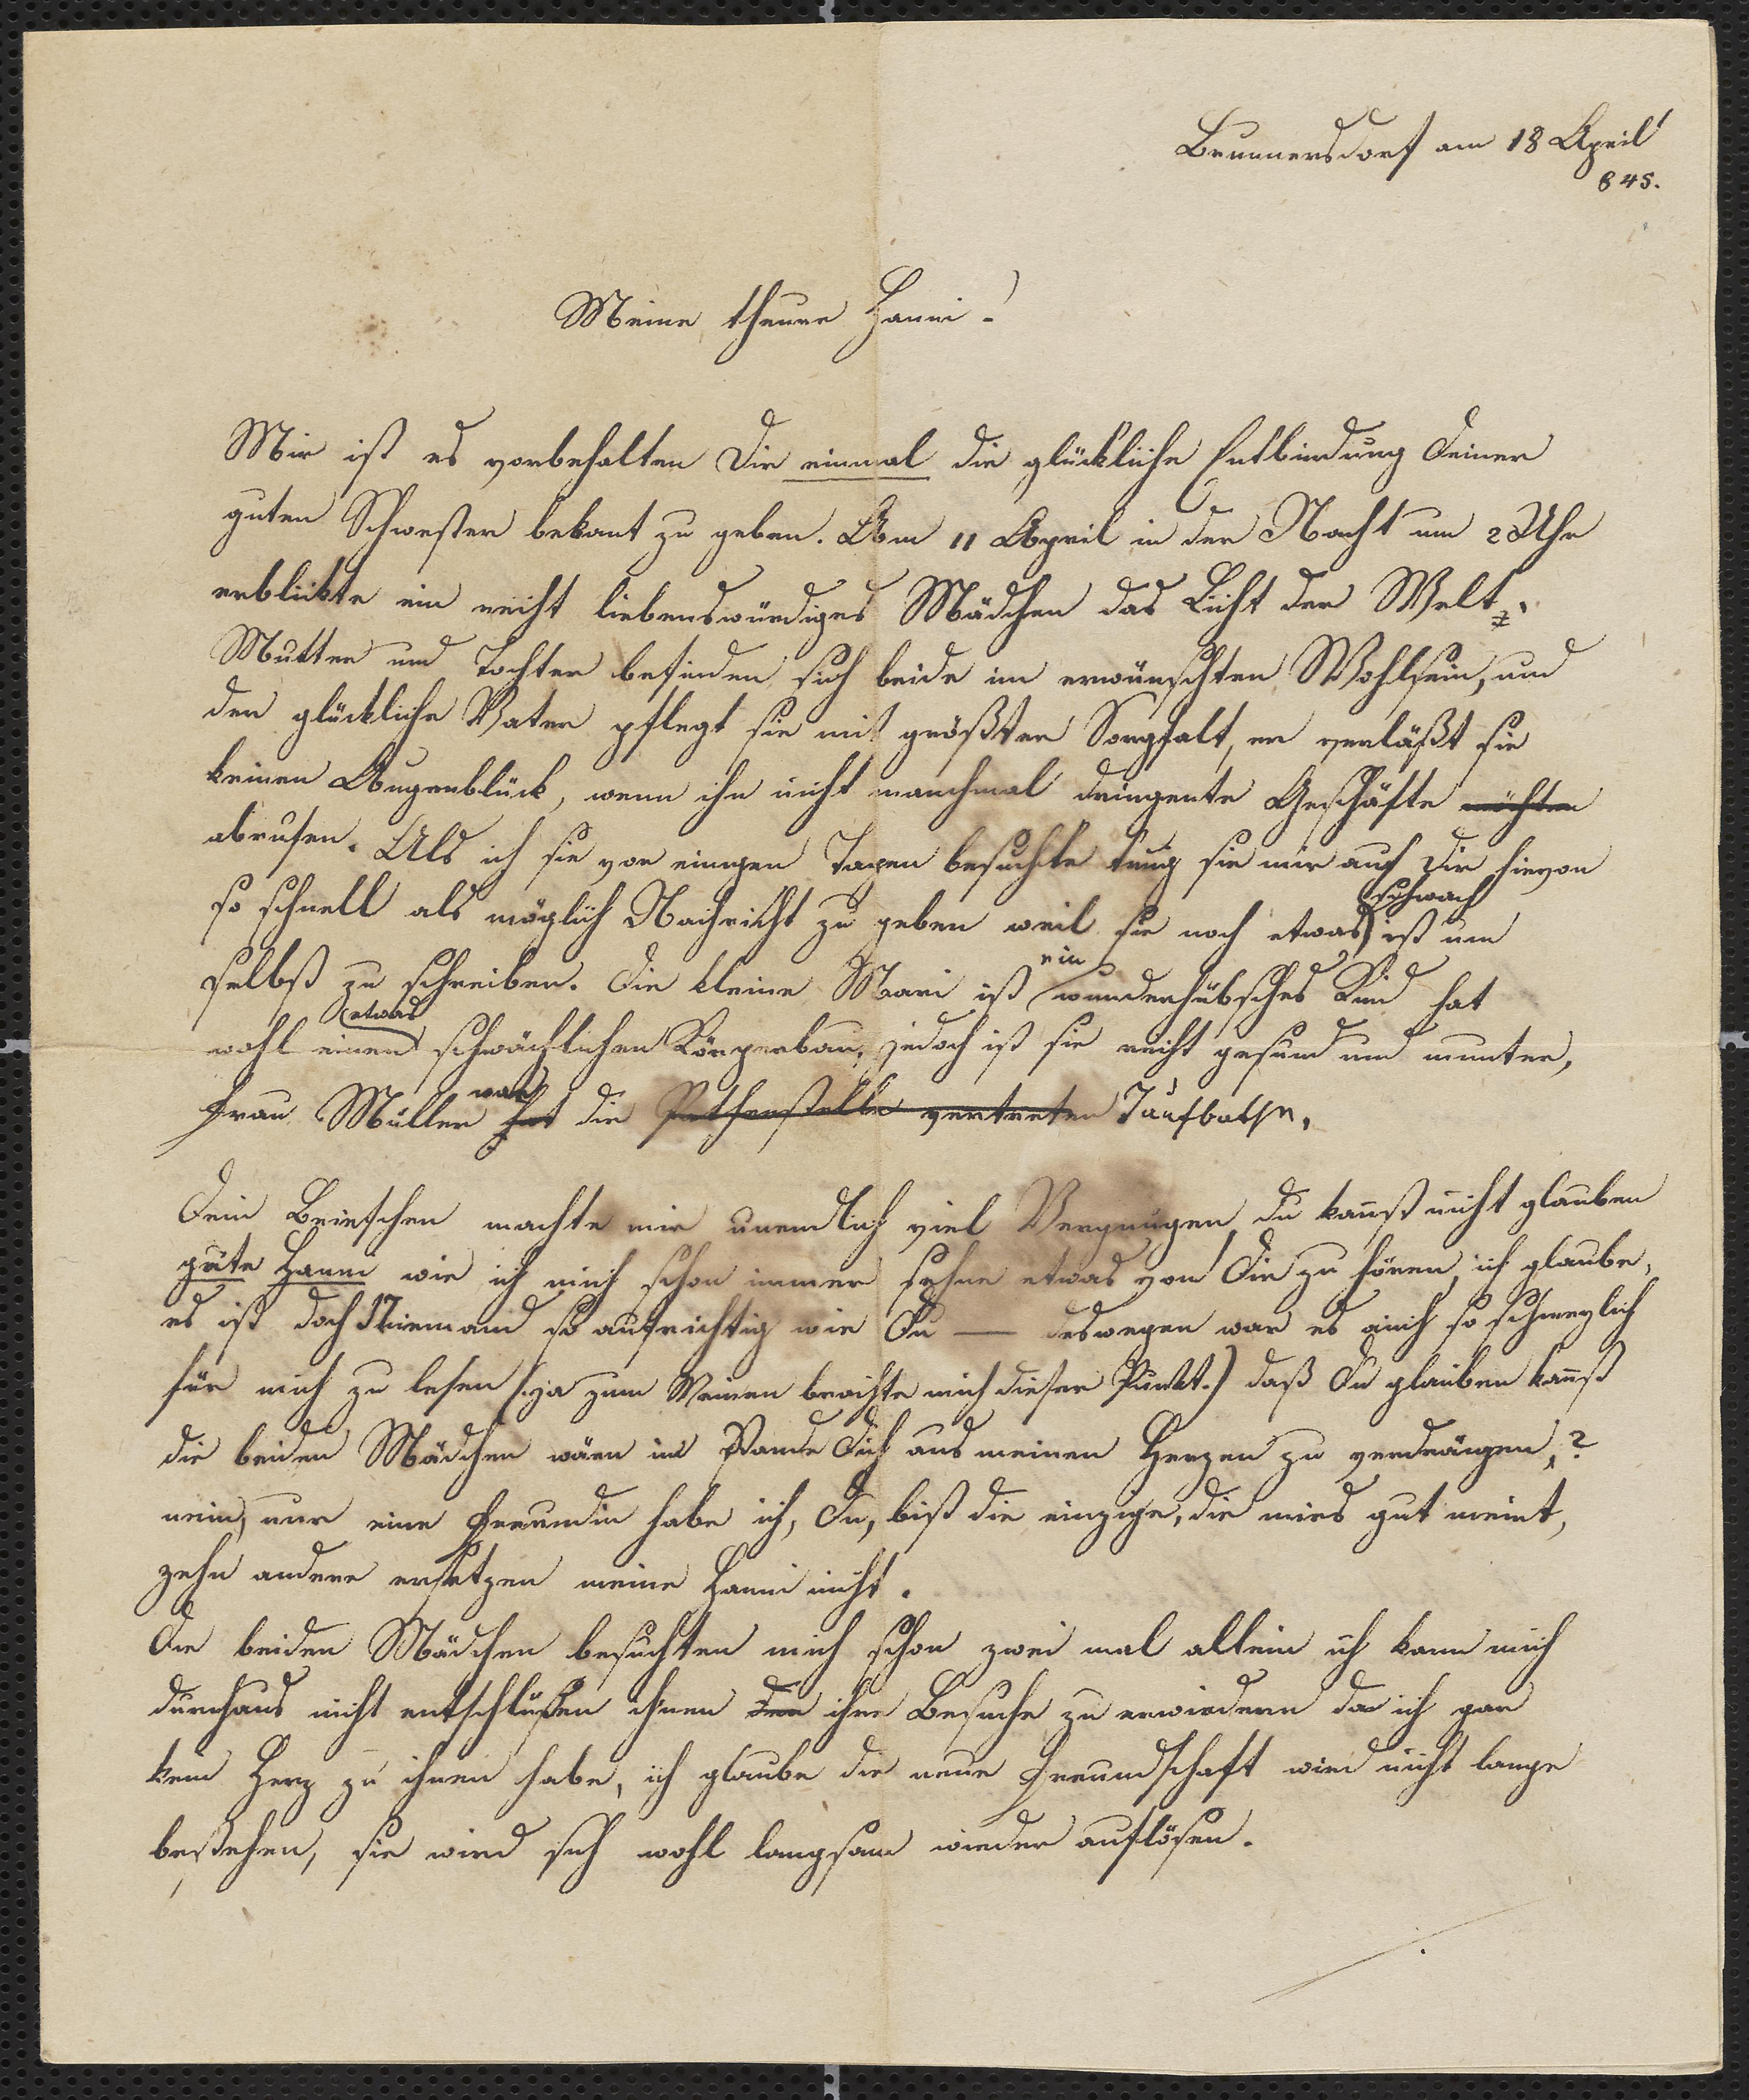 Brunnersdorf am 18 April
845.
Meine theure Hanni!
Mir ist es vorbehalten Dir einmal die glückliche Entbindung Deiner
guten Schwester bekant zu geben. Am 11 April in der Nacht um 2 Uhr
erblickte ein recht liebenswürdiges Mädchen das Licht der Welt.
Mutter und Tochter befinden sich beide im erwünschten Wohlsein, und
der glückliche Vater pflegt sie mit größter Sorgfalt, er verläßt sie
keinen Augenblick, wenn ihn nicht manchmal dringente Geschäfte möchten
abrufen. Als ich sie vor einigen Tagen besuchte trug sie mir auf Dir hievon
so schnell als möglich Nachricht zu geben weil sie noch etwas schwach ist um
selbst zu schreiben. Die kleine Mari ist ein wunderhübsches Kind hat
wohl einen etwas schwächlichen Körperbau, jedoch ist sie recht gesund und munter,
Frau Müller hat war die Pathenstelle vertreten Taufbathe.
Dein Briefchen machte mir unendlich viel Vergnügen, du kanst nicht glauben
gute Hanni wie ich mich schon immer sehne etwas von Dir zu hören, ich glaube,
es ist doch Niemand so aufrichtig wie Du — deswegen war es auch so schmerzlich
für mich zu lesen (:ja zum Weinen brachte mich dieser Punkt.) daß Du glauben kanst
die beiden Mädchen wären im Stande Dich aus meinen Herzen zu verdrängen,?
nein, nur eine Freundin habe ich, Du, bist die einzige, die mirs gut meint,
zehn andere ersetzen meine Hanni nicht.
Die beiden Mädchen besuchten mich schon zwei mal allein ich kann mich
durchaus nicht entschlüßen ihnen den ihre Besuche zu erwiedern da ich gar
kein Herz zu ihnen habe, ich glaube die neue Freundschaft wird nicht lange
bestehen, sie wird sich wohl langsam wieder auflösen.